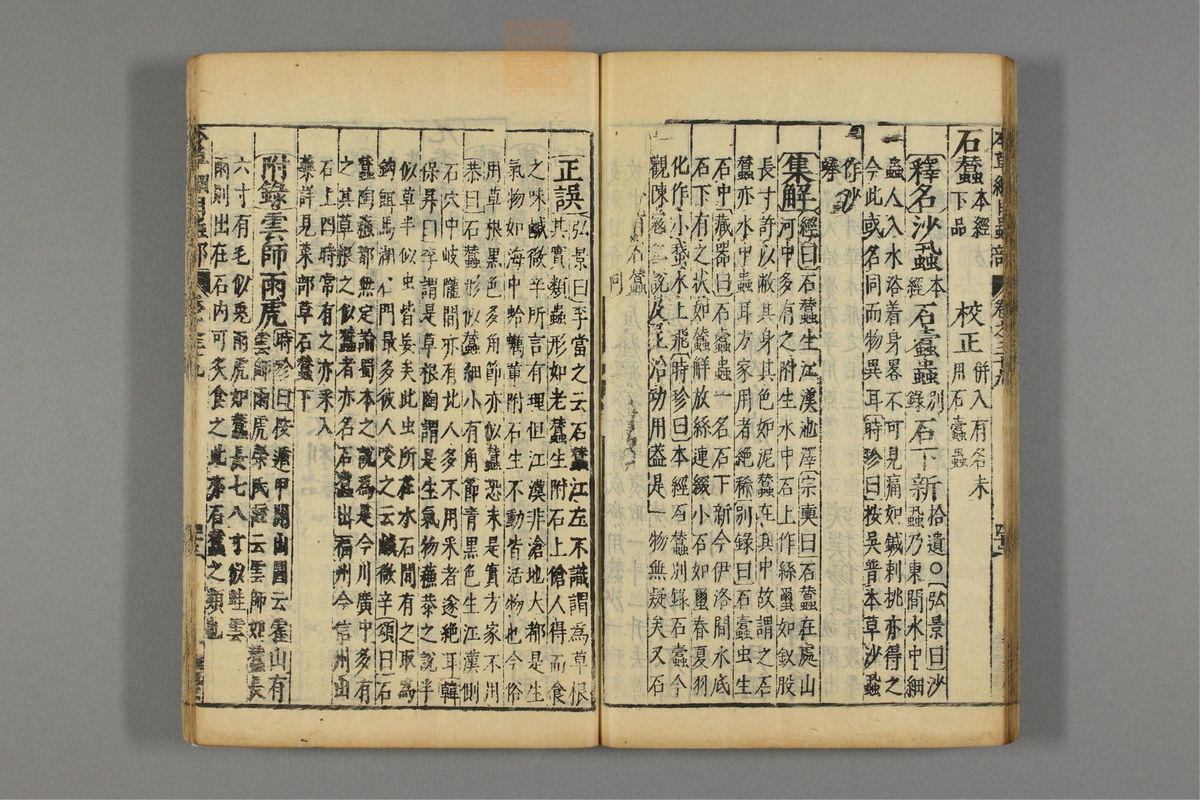 石蠶本經下品 校正併入有名未用石蠹蟲
釋名沙虱本經石蠹蟲別錄石下新
拾遺○弘景曰沙
虱乃東間水中細
蟲人入水浴着身畧不可見痛如鍼刺挑亦得之
今此或名同而物異耳時珍曰按吳普本草沙虱
作沙
集解經曰石蠶生江漢池澤宗奭曰石蠶在處山
河中多有之附生水中石上作絲蠒如釵股
長寸許似敝其身其色如泥蠶在其中故謂之石
蠶亦水中蟲耳方家用者絕稀別錄曰石蠹虫生
石中藏器曰石蠹蟲一名石下新今伊洛間水底
石下有之狀如蠶解放絲連綴小石如蠒春夏羽
化作小蛾水上飛時珍曰本經石蠶別錄石蠹今
觀陳說及主治功用蓋是一物無疑矣又石
石蠶
同
正誤弘景曰李當之云石蠶江左不識謂為草根
其實類蟲形如老蠶生附石上傖人得而食
之味鹹微辛所言有理但江漢非滄地大都是生
氣物如海中蛤蠣軰附石生不動皆活物也今俗
用草根黑色多角節亦似蠶恐未是實方家不用
恭曰石蠶形似蠶細小有角節青黑色生江漢側
石穴中岐隴間亦有北人多不用采者遂絕耳韓
保昇曰李謂是草根陶謂是生氣物蘇恭之說半
似草半似虫皆妄矣此虫所在水石間有之取為
鈎餌馬湖石門最多彼人啖之云鹹微辛頌曰石
蠶陶蘇都無定論蜀本之說為是今川廣中多有
之其草根之似蠶者亦名石蠶出福州今信州山
石上四時常有之亦采入
藥詳見菜部草石蠶下
附錄雲師雨虎時珍曰按遁甲開山圖云霍山有
雲師雨虎榮氏註云雲師如蠶長
六寸有毛似兎雨虎如蠶長七八寸似蛭雲
雨則出在石內可炙食之此亦石蠶之類也